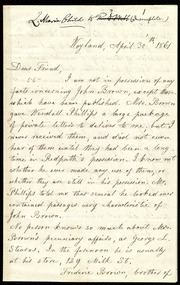 L. Maria Child to
Wayland, April 30th 1861
Dear Friend,
I am not in possession of any
facts concerning John Brown, except those
which have been published. Mrs. Brown
gave Wendell Phillips a large package
of private letters to deliver to me, but I
never received them, and did not even
hear of them until they had been a long
time in Redpath's possession. I know not
whether he ever made any use of them, or
whether they are still in his possession. Mr.
Phillips told me that several he looked over
contained passages very characteristic of
John Brown.
No person knows so much about Mrs.
Brown's pecuniary affairs, as George L.
Stearns. In the forenoon he is usually
at his store, 129 Milk St.
Frederic Brown, brother of